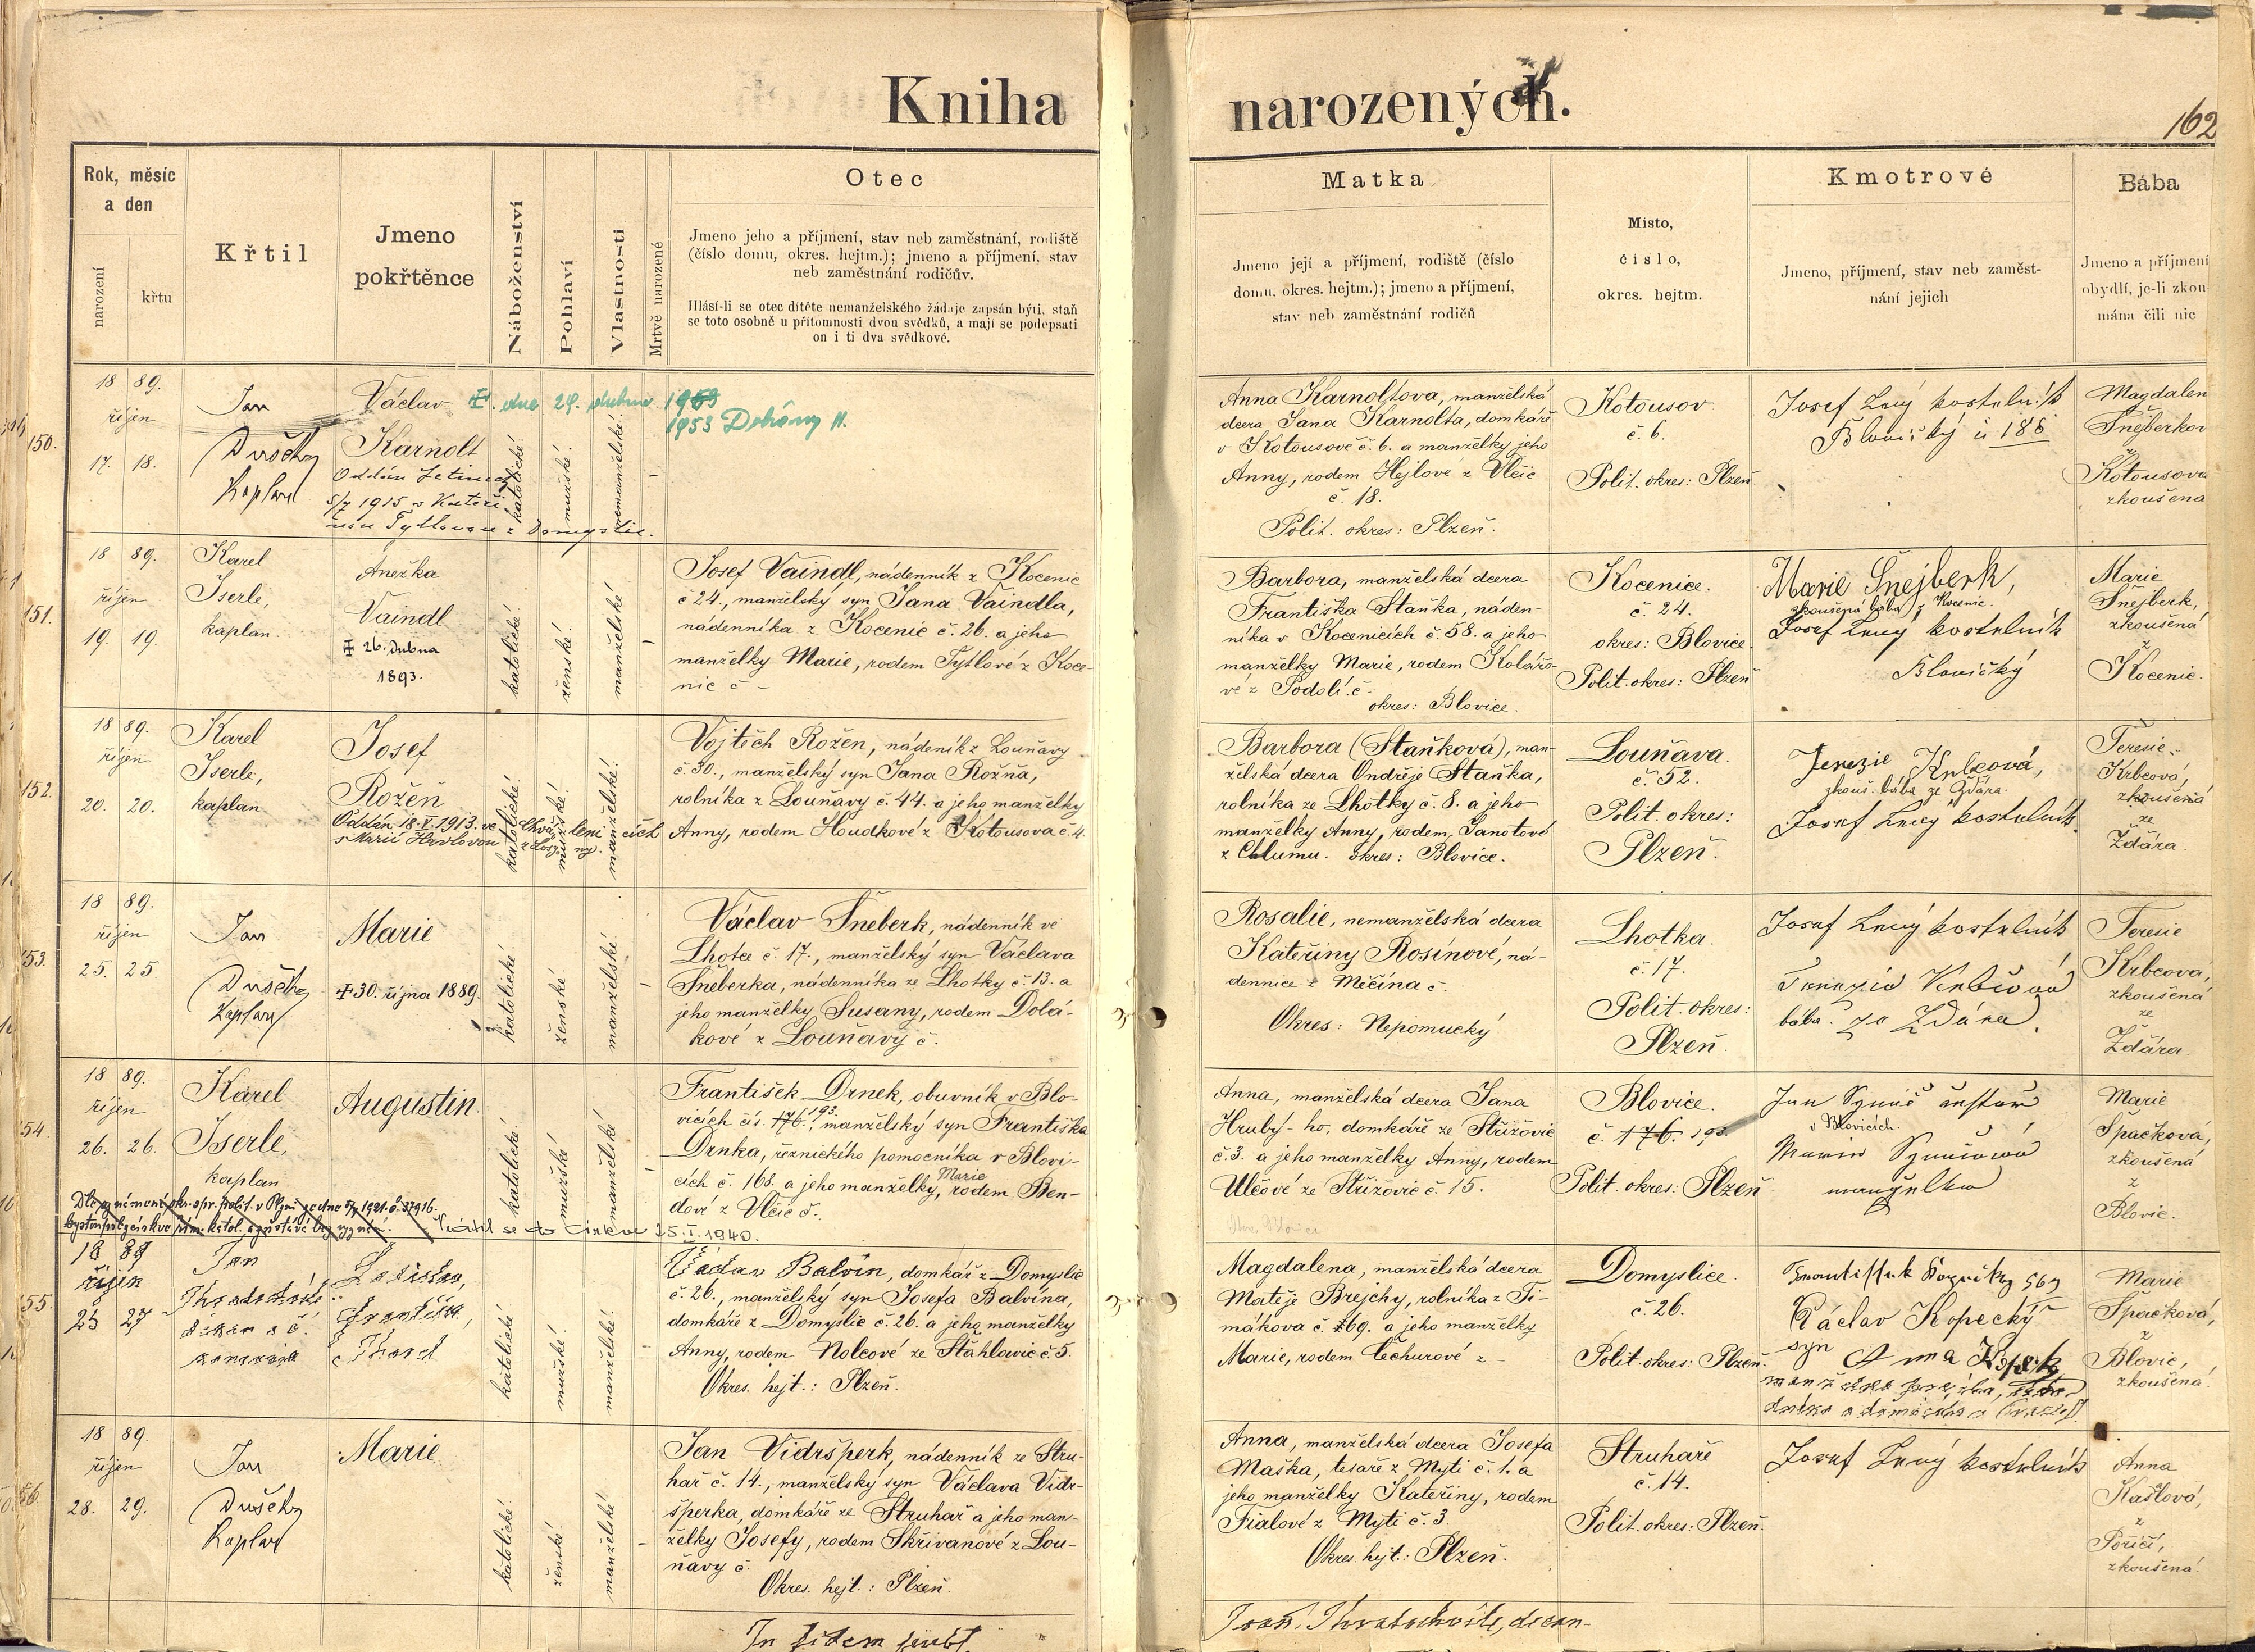 Kniha narozených.
162
Rok, měsíc
a den
narození
křtu
Křtil
Jmeno
pokřtěnce
Náboženství
Pohlaví
Vlastnosti
Mrtvě narozené
Otec
Jmeno jeho a příjmení, stav neb zaměstnání, rodiště
(číslo domu, okres. hejtm.); jmeno a příjmení, stav
neb zaměstnání rodičův.
Hlásí-li se otec dítěte nemanželského žádaje zapsán býti, staň
se toto osobně u přítomnosti dvou svědků, a mají se podepsati
on i ti dva svědkové.
Matka
Jmeno její a příjmení, rodiště (číslo
domu, okres. hejtm.); jmeno a příjmení,
stav neb zaměstnání rodičů
Místo,
číslo,
okres. hejtm.
Kmotrové
Jmeno, příjmení, stav neb zaměst-
nání jejich
Bába
Jmeno a příjmení
obydlí, je-li zkou
mána čili nic
150.
18 89.
říjen
17. 18.
Jan
Dušek
kaplan
Václav
Karnolt
Oddán Letinech
5/7 1915 s Kateři-
nou Tytlovou z Domyslic.
dne 29. dubna 1953
1953
katolické.
mužské.
nemanželské.
Anna Karnoltova, manželská
dcera Jana Karnolta, domkáře
v Kotousově č. 6. a manželky jeho
Anny, rodem Hejlové z Vlčic
č. 18.
Polit. okres: Plzeň.
Kotousov.
č. 6.
Polit. okres: Plzeň
Josef Levý kostelník
Blovický č 188
Magdalen
Šnejberkov
z
Kotousova
zkoušena
151.
18 89.
říjen
19. 19.
Karel
Iserle,
kaplan.
Anežka
Vaindl
26. Dubna
1893.
katolické.
ženské.
manželské
Josef Vaindl, nádenník z Kocenic
č 24., manželský syn Jana Vaindla,
nádenníka z Kocenic č. 26. a jeho
manželky Marie, rodem Tytlové z Koce-
nic č -
Barbora, manželská dcera
Františka Staňka, náden-
níka v Kocenicích č. 58. a jeho
manželky Marie, rodem Kolářo-
vé z Podolí. č.
okres: Blovice.
Kocenice.
č. 24.
okres: Blovice.
Polit. okres: Plzeň
Marie Šnejberk,
zkoušená bába z Kocenic.
Josef Levý kostelník
Blovický
Marie
Šnejberk,
zkoušená
z
Kocenic.
152.
18 89.
říjen
20. 20.
Karel
Iserle,
kaplan
Josef
Rožeň
Oddán 18.V.1913. ve Chválenicích
s Marií Havlovou z Losiny.
katolické.
mužské.
manželské.
Vojtěch Rožen, nádeník z Louňavy
č. 30., manželský syn Jana Rožňa,
rolníka z Louňavy č. 44. a jeho manželky
Anny, rodem Houdkové z Kotousova č. 4.
Barbora (Staňková), man-
želská dcera Ondřeje Staňka,
rolníka ze Lhotky č. 8. a jeho
manželky Anny, rodem Janotové
z Chlumu. okres: Blovice.
Louňava.
č. 52.
Polit. okres:
Plzeň.
Terezie Krbcová,
zkouš. bába ze Ždára.
Josef Levý kostelník.
Teresie
Krbcová,
zkoušená
ze
Ždára.
153.
18 89.
říjen
25. 25.
Jan
Dušek
kaplan
Marie
30. října 1889.
katolické.
ženské
manželské
Václav Šneberk, nádenník ve
Lhotce č. 17., manželský syn Václava
Šneberka, nádenníka ze Lhotky č. 13. a
jeho manželky Susany, rodem Dolá-
kové z Louňavy č.
Rosalie, nemanželská dcera
Kateřiny Rosínové, ná-
dennice z Měčína č.
Okres: Nepomucký
Lhotka.
č. 17.
Polit. okres:
Plzeň.
Josef Levý kostelník
Terezia Krbcová
bába ze Ždára.
Teresie
Krbcová,
zkoušená
ze
Ždára.
154.
18 89.
říjen
26. 26.
Karel
Iserle,
kaplan
Augustin.
katolické.
mužské
manželské
František Drnek, obuvník v Blo-
vicích čís. 176. 193. manželský syn Františka
Drnka, řeznického pomocníka v Blovi-
cích č. 168. a jeho manželky, Marie rodem Ben-
dové z Vlčic č.
Vrátil se do církve 25.I.1940.
Anna, manželská dcera Jana
Hrubý-ho, domkáře ze Střížovic
č. 3. a jeho manželky Anny, rodem
Ulčové ze Střížovic č. 15.
Blovice.
č. 176. 193.
Polit. okres: Plzeň
v Blovicích.
manželka
Marie
Špačková,
zkoušená
z
Blovic.
155.
18 89
říjen
25 27
Jan
Ladislav,
František
katolické
mužské
manželské.
Václav Balvín, domkář z Domyslic
č. 26., manželský syn Josefa Balvína,
domkáře z Domyslic č. 26. a jeho manželky
Anny, rodem Nolcové ze Šťáhlavic č. 5.
Okres. hejt.: Plzeň.
Magdalena, manželská dcera
Matěje Brejchy, rolníka z Ti-
mákova č. 169. a jeho manželky
Marie, rodem Čechurové z -
Domyslice.
č. 26.
Polit. okres: Plzeň.
Václav Kopecký
syn
Anna
Marie
Špačková,
z
Blovic,
zkoušená.
156.
18 89.
říjen
28. 29.
Jan
Dušek
kaplan
Marie
katolické.
ženské.
manželské
Jan Vidršperk, nádenník ze Stru-
hař č. 14., manželský syn Václava Vidr-
šperka, domkáře ze Struhař a jeho man-
želky Josefy, rodem Skřivanové z Lou-
ňavy č.
Okres. hejt.: Plzeň.
Anna, manželská dcera Josefa
Maška, tesaře z Mýti č. 1. a
jeho manželky Kateřiny, rodem
Fialové z Mýti č. 3.
Okres. hejt.: Plzeň.
Struhaře
č. 14.
Polit. okres: Plzeň.
Josef Levý kostelník
Anna
Kaštlová,
z
Poříčí,
zkoušená.
In fidem